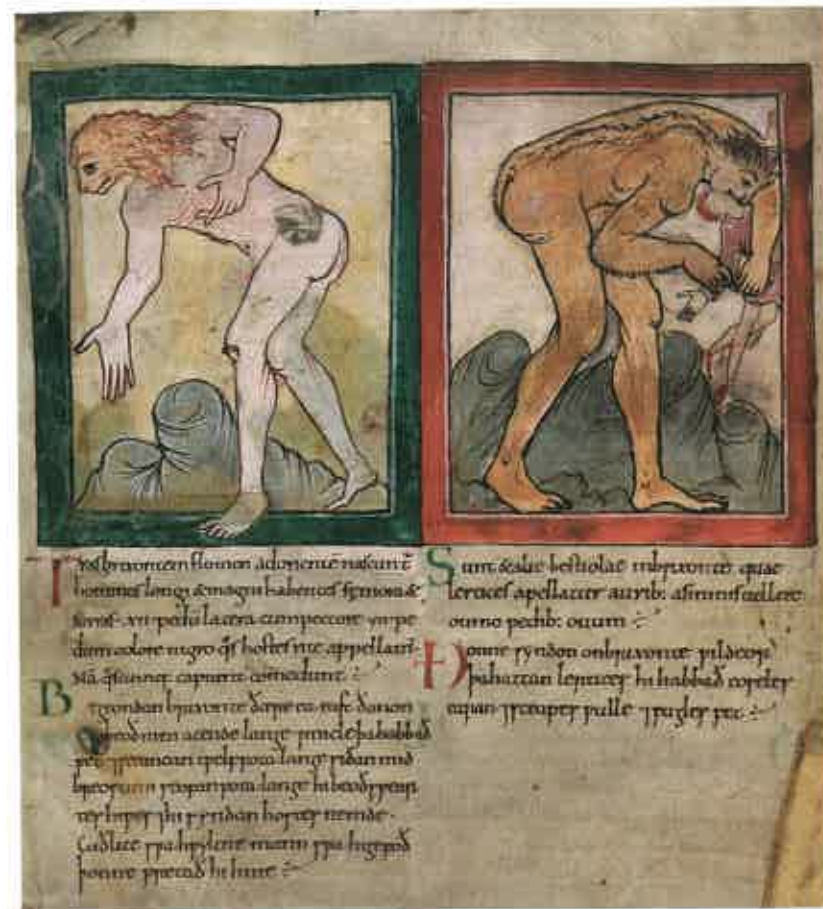 Trans brixontem flumen ad orientē nascunt̄
homines longi & magni habentes femora &
surras .xii. pedū latera cum pectore .vii. pe
dum colore nigro q̄s hostes rite appellam
nā q̄scunq; capiunt comedunt
Begeondan brixonte ðære ea east þanon
beoð men acende lange ⁊ micle þa habbað
fet ⁊ sconcan tƿelf fota lange sidan mid
breostum seofan fota lange hi beoð
hiƿes ⁊ hi syndon hostes nemde.
Cuðlice sƿa hƿylcne mann sƿa hi gefoð
þonne fretað hi hine
Sunt & alie bestiolae in brixonte quae
lertices apellantur aurib: asininis uellere
ouino pedib: ouum
Ðonne syndon on brixonte ƿildeor
þa hattan lertices hi habbað eoseles
earan ⁊ sceapes ƿulle ⁊ fugles fet